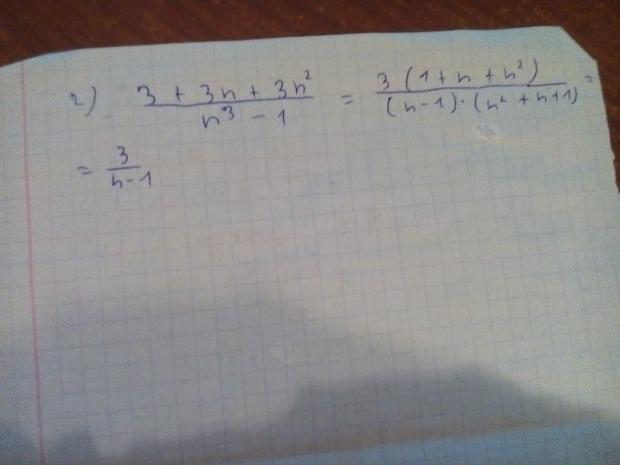 2) (3 + 3n + 3n²)/(n³ - 1) = (3 (1 + n + n²))/((n-1)·(n² + n + 1)) =
= 3/(n-1)